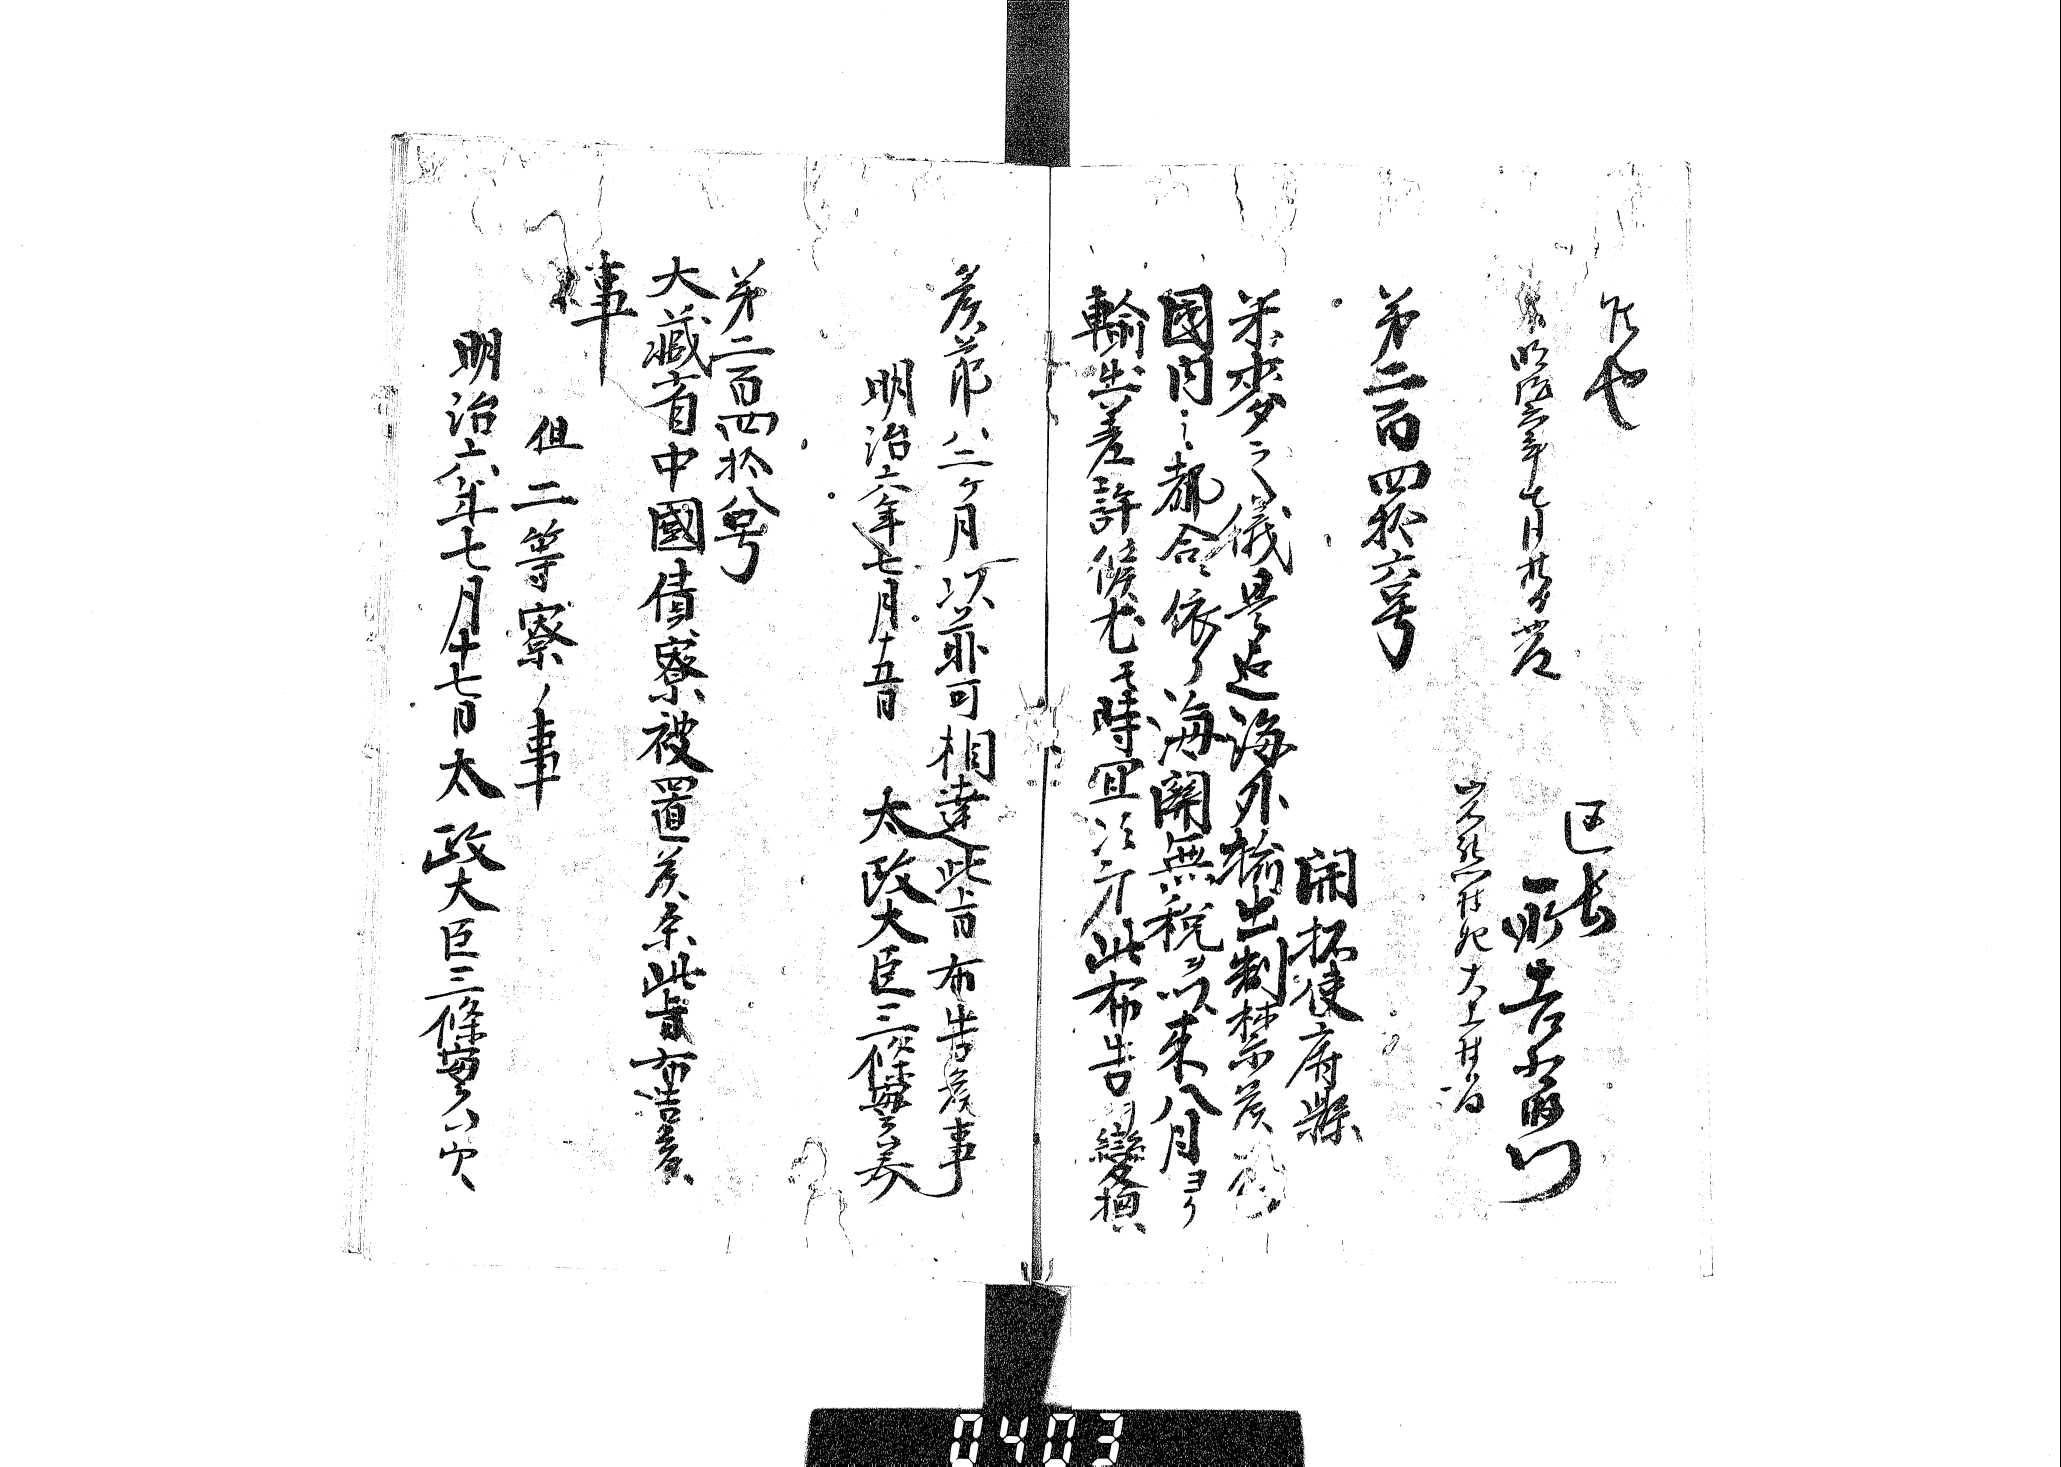 候也
明治六年七月廿九日
区長
第二百四拾六号
開拓使府縣
米麥之儀是迄海外輸出制禁候処
國内之都合ニ依リ海関無税ヲ以来八月ヨリ
輸出差許候尤モ時宜次第此布告変換
候節ハ二ケ月以前可相達此旨布告候事
明治六年七月十五日 太政大臣三條實美
第二百四拾八号
大藏省中國債寮被置候条此旨布告候
事
但二等寮ノ事
明治六年七月十七日 太政大臣三條實美
0403